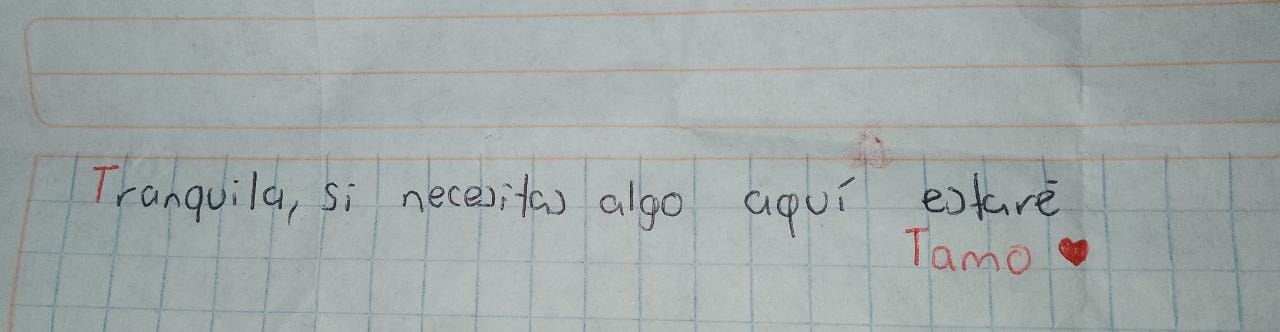 Tranquila, si necesitas algo aquí estaré
Tamo ♥